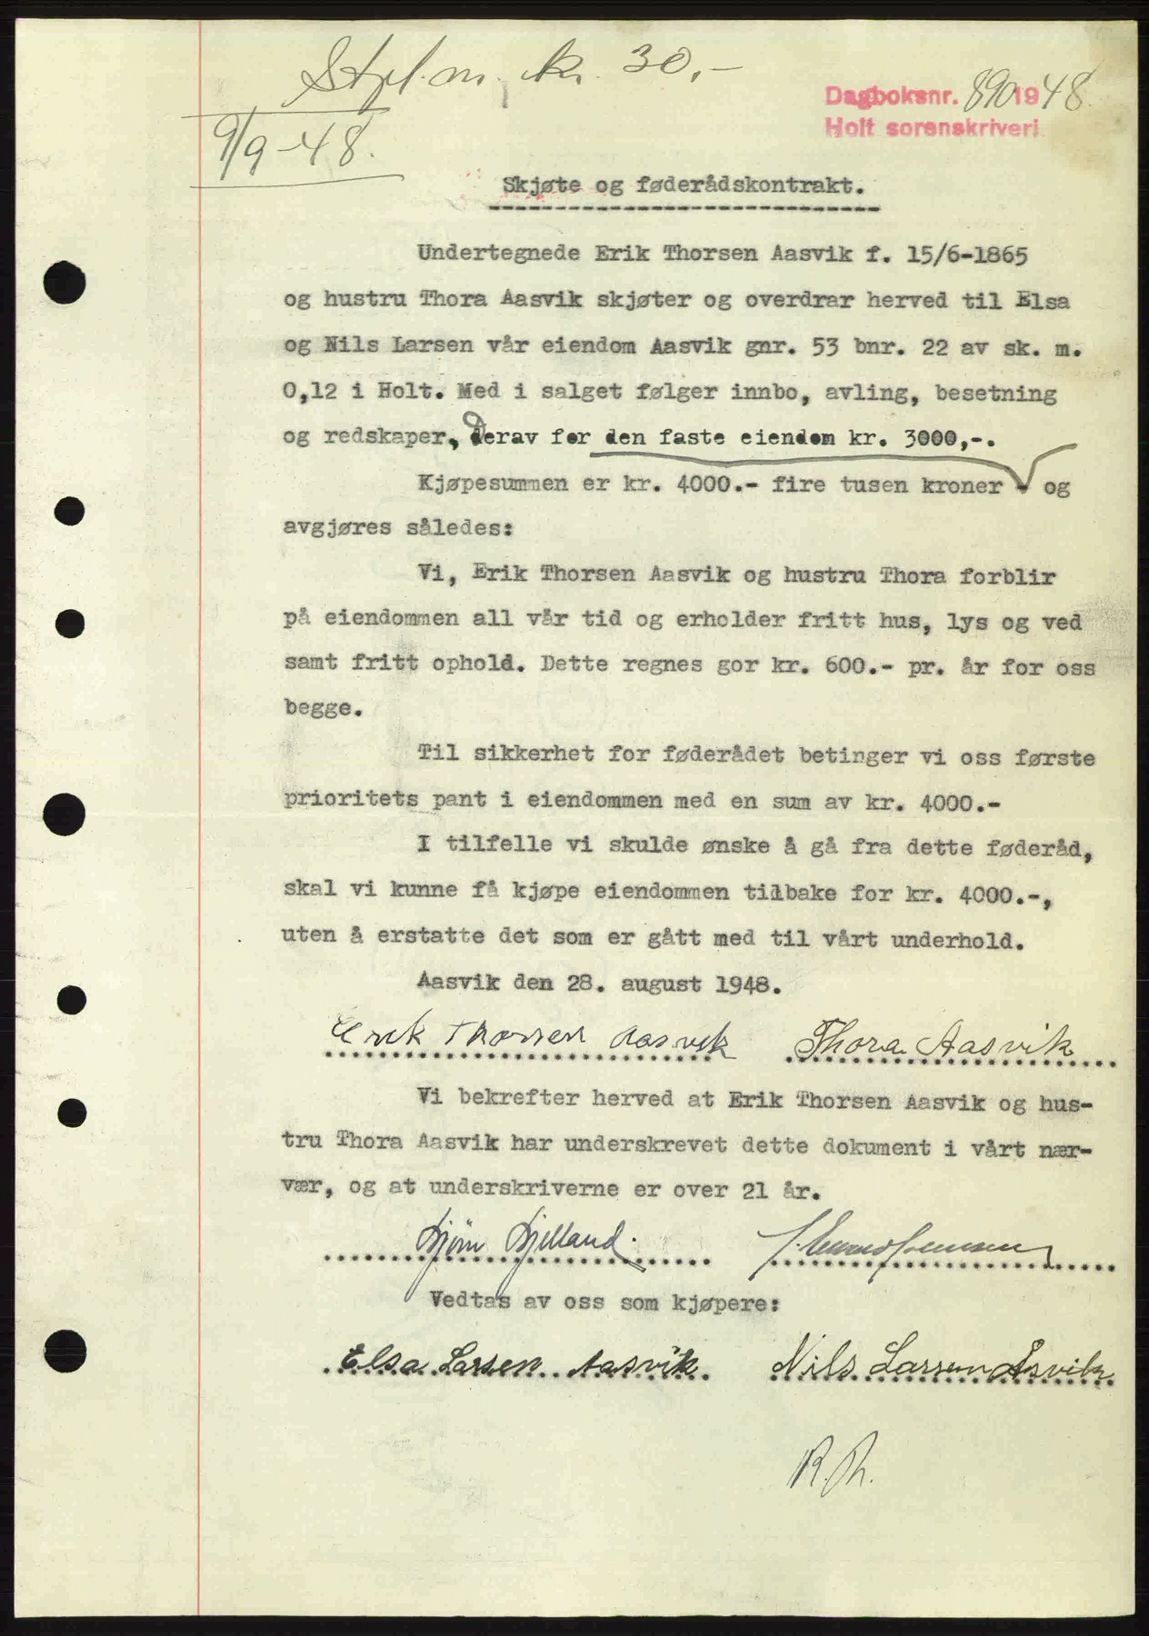 Stpl.m. kr. 30,-
Dagboksnr. 890 1948
Holt sorenskriveri
9/9-48.
Skjøte og føderådskontrakt.
Undertegnede Erik Thorsen Aasvik f. 15/6-1865
og hustru Thora Aasvik skjøter og overdrar herved til Elsa
og Nils Larsen vår eiendom Aasvik gnr. 53 bnr. 22 av sk. m.
0,12 i Holt. Med i salget følger innbo, avling, besetning
og redskaper, derav for den faste eiendom kr. 3000,-.
Kjøpesummen er kr. 4000.- fire tusen kroner - og
avgjøres således:
Vi, Erik Thorsen Aasvik og hustru Thora forblir
på eiendommen all vår tid og erholder fritt hus, lys og ved
samt fritt ophold. Dette regnes gor kr. 600.- pr. år for oss
begge.
Til sikkerhet for føderådet betinger vi oss første
prioritets pant i eiendommen med en sum av kr. 4000.-
I tilfelle vi skulde ønske å gå fra dette føderåd,
skal vi kunne få kjøpe eiendommen tilbake for kr. 4000.-,
uten å erstatte det som er gått med til vårt underhold.
Aasvik den 28. august 1948.
Erik Thorsen Aasvik Thora Aasvik
Vi bekrefter herved at Erik Thorsen Aasvik og hus-
tru Thora Aasvik har underskrevet dette dokument i vårt nær-
vær, og at underskriverne er over 21 år.
Bjørn Gjelland.
Vedtas av oss som kjøpere:
Elsa Larsen Aasvik Nils Larsen Aasvik
R.Th.